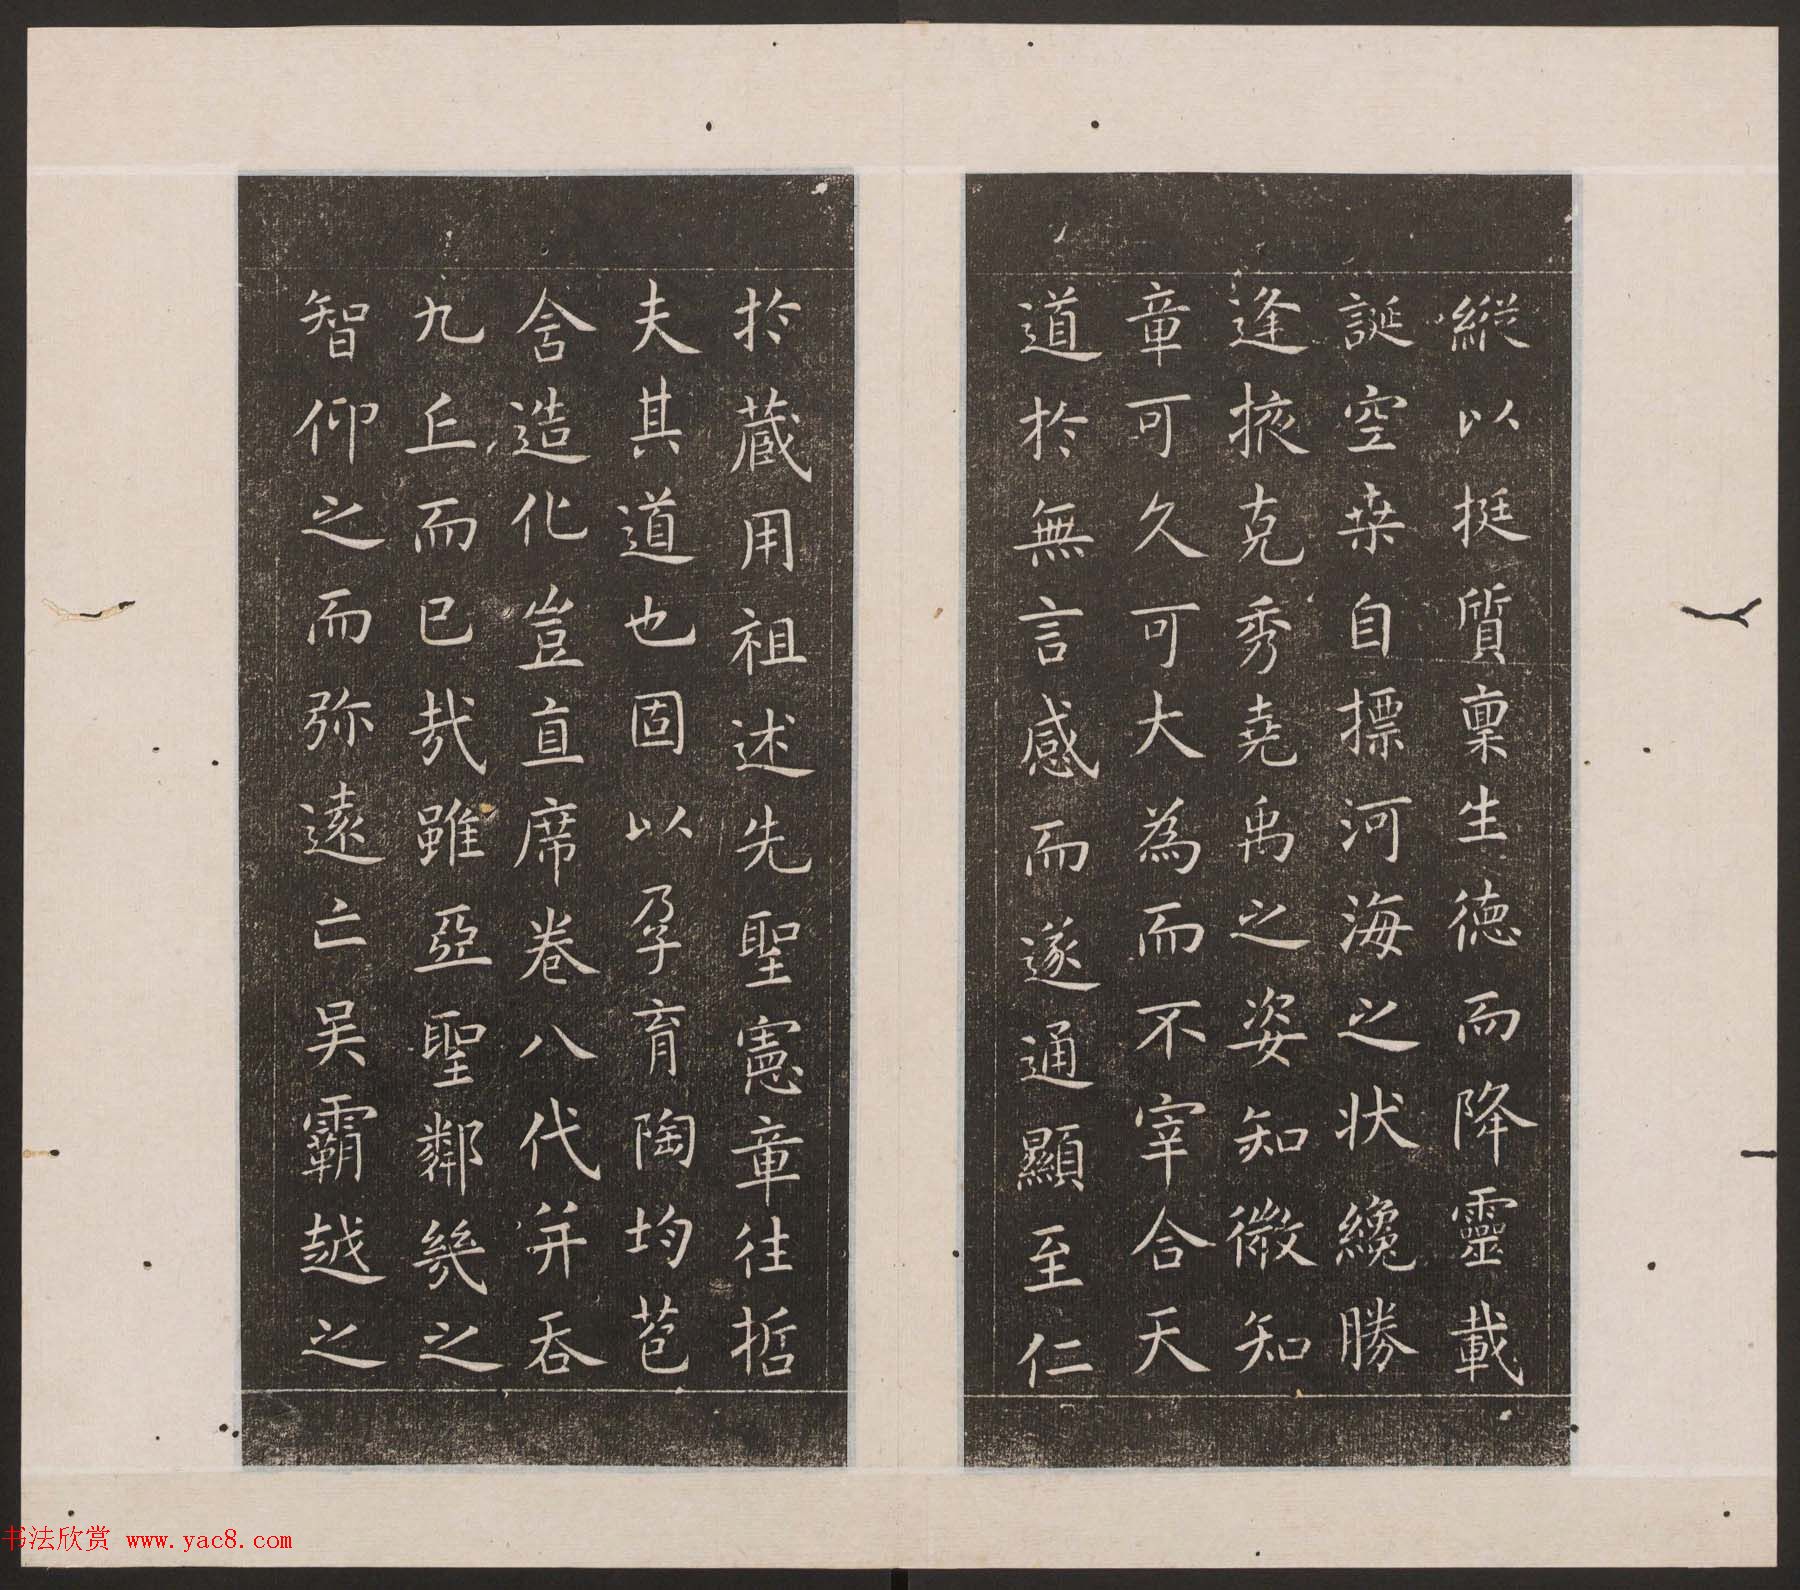 縱以挺質稟生德而降靈載
誕空桒自摽河海之狀纔勝
逢掖克秀堯禹之姿知微知
章可久可大為而不宰合天
道於無言感而遂通顯至仁
於蔵用祖述先聖憲章往哲
夫其道也固以孕育陶均苞
含造化豈直席卷八代并吞
九丘而已㦲雖亞聖鄰幾之
智仰之而弥遠亡吳霸越之
书法欣赏 www.yac8.com